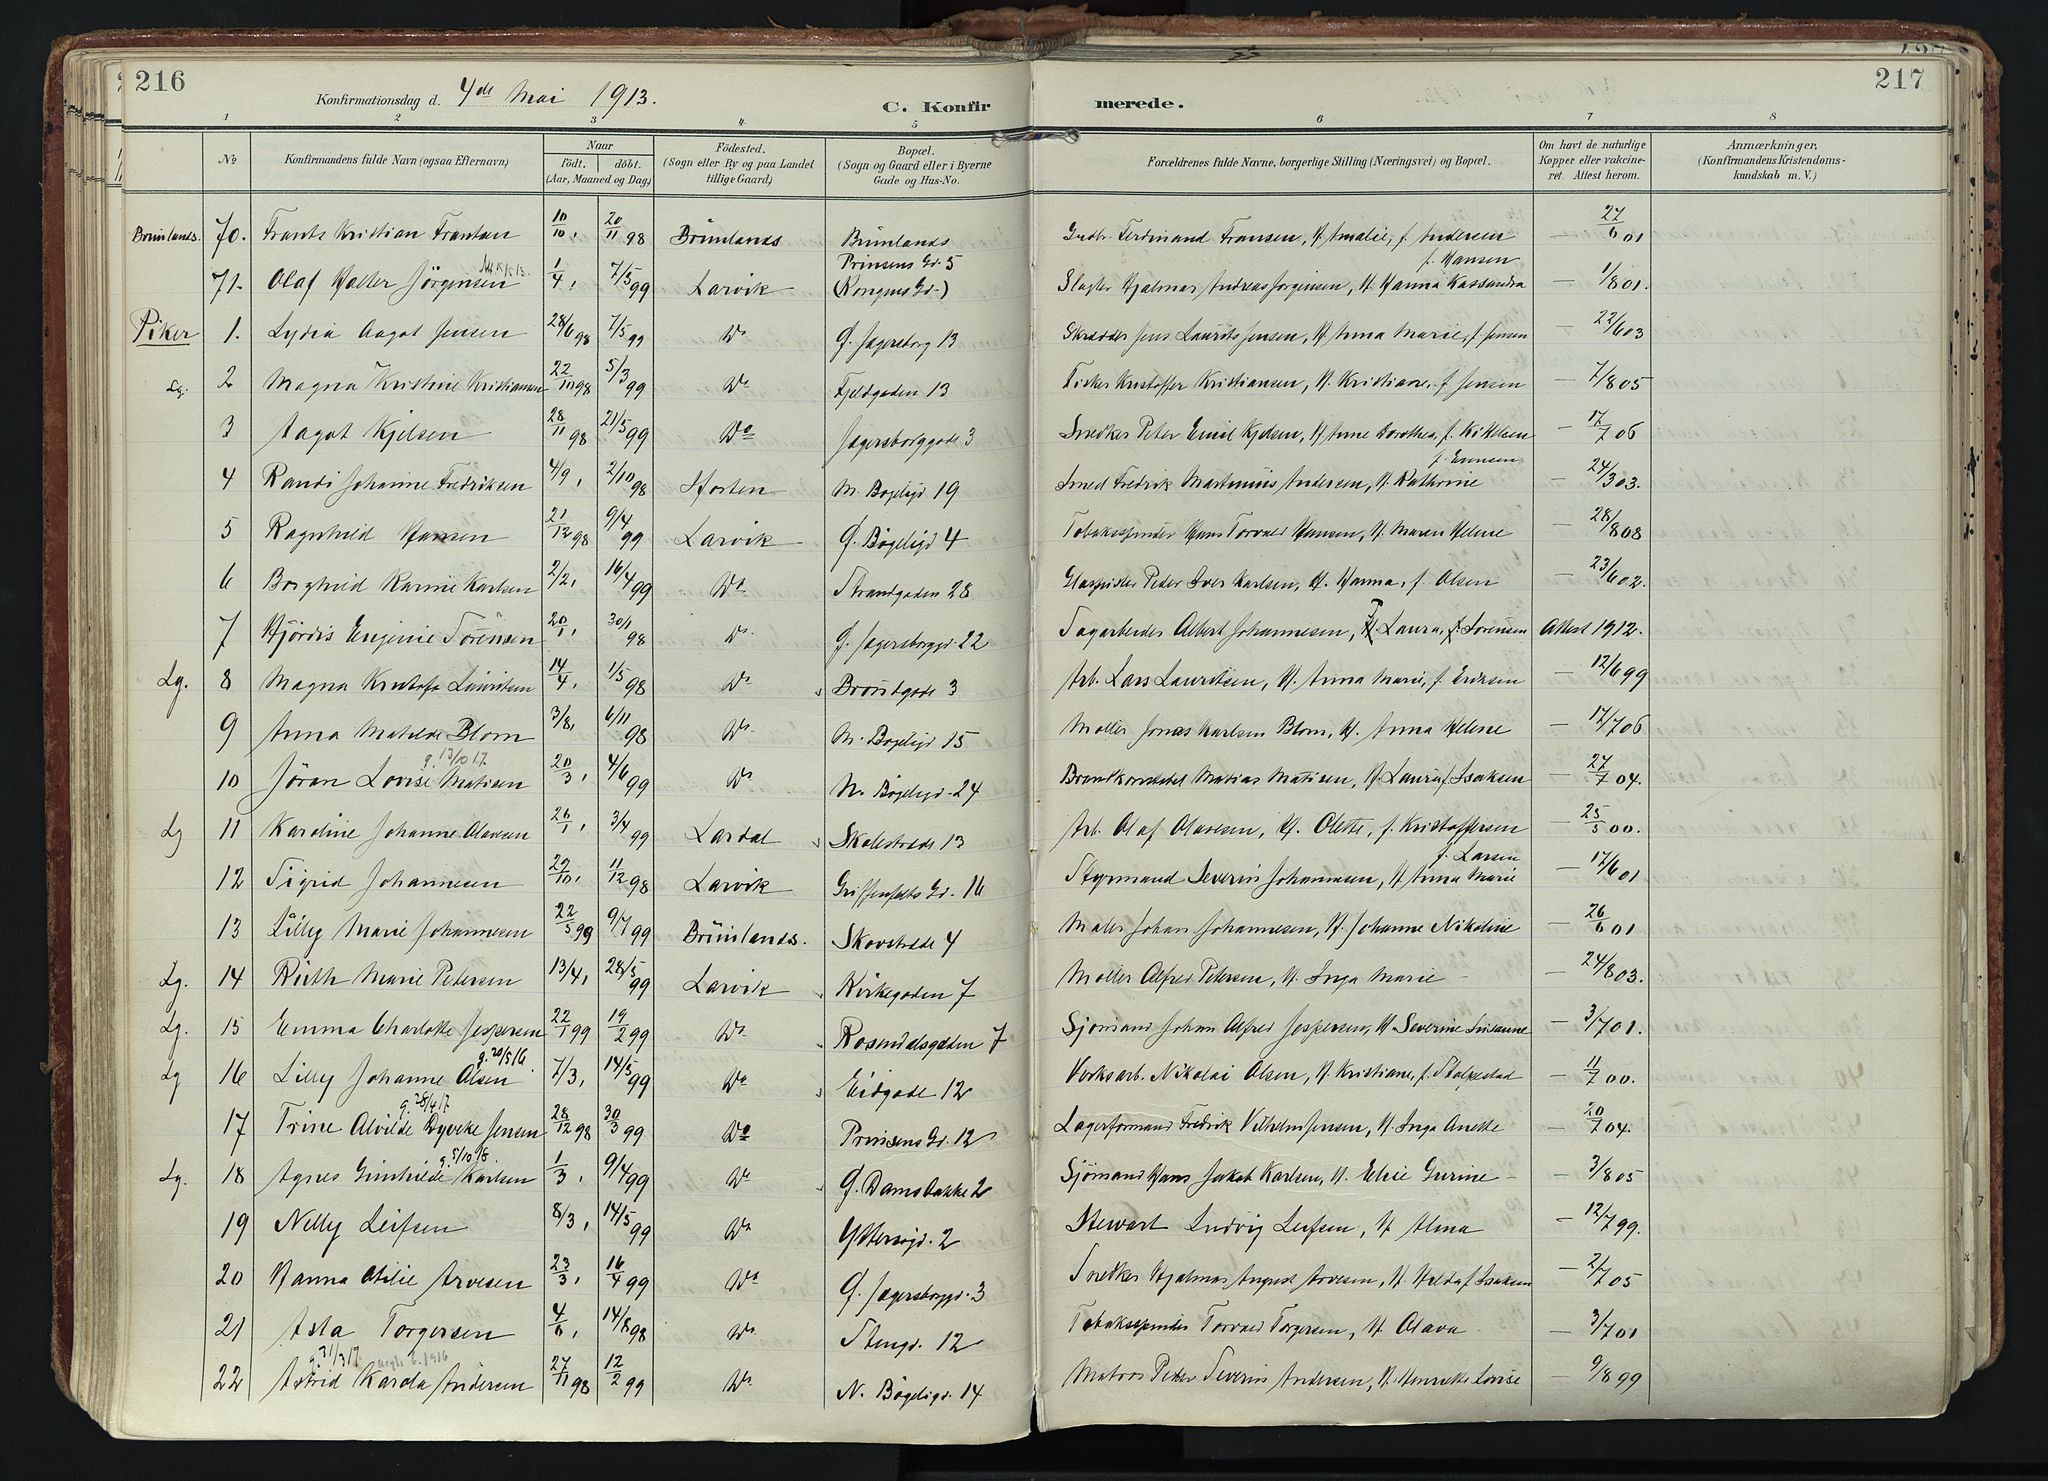 216
217
Konfirmationsdag d. 4de Mai 1913.
C. Konfirmerede.
1 2 3 4 5 6 7 8
No
Konfirmandens fulde Navn (ogsaa Efternavn)
Naar
født. døbt.
(Aar, Maaned og Dag)
Fødested.
(Sogn eller By og paa Landet
tillige Gaard)
Bopæl.
(Sogn og Gaard eller i Byerne
Gade og Hus-No.
Forældrenes fulde Navne, borgerlige Stilling (Næringsvei) og Bopæl.
Om havt de naturlige
Kopper eller vakcine-
ret. Attest herom.
Anmærkninger,
(Konfirmandens Kristendoms-
kundskab m. V.)
Brunlands. 70. Frants Kristian 10/10, 20/11 98 Brunlands Brunlands Ferdinand Fransen, H. Amalie, f. Andersen — 27/6 01
71. Olaf Walter Jörgensen 1/4, 7/5 99 Larvik Prinsens Gd. 5 (Kongens Gd.) Slagter Hjalmar Andreas Jörgensen, H. Hanna Kassandra f. Hansen — 1/8 01.
Piker 1. Lydia Aagot Jensen 28/6 98 7/5 99 Do Ø. Jegersborg 13 Skrædder Jens Laurits Jensen, H. Anna Marie, f. Jensen — 22/6 03
Lg. 2 Magna Kristine Kristiansen 22/10 98 5/3 99 Do Fjeldgaden 13 Fisker Kristoffer Kristiansen, H. Kristiane, f. Jensen — 7/8 05
3 Aagot Kjelsen 28/11 98 21/5 99 Do Jegersborggade 3 Snedker Peter Emil Kjelsen, H. Anne Dorothea, f. Kittelsen — 17/7 06
4 Randi Johanne Fredriksen 4/9, 2/10 98 Horten N. Bøgeligd 19 Smed Fredrik Martinius Andersen, H. Kathrine f. Evensen — 24/3 03.
5 Ragnhild Hansen 21/12 98 9/4 99 Larvik Ø. Bøgeligd 4 Tobaksspinder Hans Torvald Hansen, H. Maren Helene — 28/8 08
6 Borghild Karine Karlsen 2/2, 16/4 99 Do Strandgaden 28 Glaspuster Peder Iver Karlsen, H. Hanna, f. Olsen — 23/6 02.
7 Hjördis Eugenie Sörensen 20/1, 30/1 98 Do Ø. Jegersborggd. 22 Sagarbeider Albert Johannesen, Laura, Sörensen Attest 1912.
Lg. 8 Magna Kristofa Lauritsen 14/4, 1/5 98 Do Brøntgade 3 Arb. Lars Lauritsen, H. Anna Marie, f. Eriksen — 12/6 99
9 Anna Matilde Blom 3/8, 6/11 98 Do N. Bøgeligd 15 Møller Jonas Karlsen Blom, H. Anna Helene — 17/7 06
10 Jöran Lovise Matisen g. 13/10 17 20/3, 4/6 99 Do N. Bøgeligd. 24 Brandkonstabel Matias Matisen, H. Laura f. Isaksen — 27/7 04.
Lg 11 Karoline Johanne Olavesen 26/1, 3/4 99 Lardal Skolestræde 13 Arb. Olaf Olavesen, H. Olette, f. Kristoffersen — 25/5 00.
12 Sigrid Johannesen 22/10, 11/12 98 Larvik Griffenfelts Gd. 16 Styrmand Severin Johannesen, H. Anna Marie f. Larsen — 17/6 01
13 Lilly Marie Johannesen 22/5 99 9/7 99 Brunlands. Skovstræde 4 Maler Johan Johannesen, H. Johanne Nikoline — 26/6 01
Lg. 14 Ruth Marie Petersen 13/4, 28/5 99 Larvik Kirkegaden 7 Møller Alfred Petersen, H. Inga Marie — 24/8 03.
Lg. 15 Emma Charlotte Jespersen 22/1 99 19/2 99 Do Rosendalsgaden 7 Sjömand Johan Alfred Jespersen, H. Severine Susanne — 3/7 01.
Lg 16 Lilly Johanne Olsen g. 20/5 16. 7/3, 14/5 99 Do Eidgade 12 Verksarb. Nikolai Olsen, H. Kristiane, f. Stolpestad — 11/7 00.
17 Trine Alvilde Dyveke Jensen g. 28/4 17 28/12 98 30/3 99 Do Prinsens Gd. 12 Lagerformand Fredrik Vilhelm Jensen, H. Inga Anette — 20/7 04.
Lg. 18 Agnes Gunhilde Karlsen g. 5/10 18. 1/3, 9/4 99 Do Ø. Damsbakke 2 Sjömand Hans Jakob Karlsen, H. Elise Gurine — 3/8 05
19 Nelly Leifsen 8/3, 14/5 99 Do Yttersøgd. 2 Stewart Ludvig Leifsen, H. Alma — 12/7 99.
20 Hanna Otilie Arvesen 23/3, 16/4 99 Do Ø. Jegersborggd. 3 Snedker Hjalmar August Arvesen, H. Hilda f. Isaksen — 2/7 05
21 Asta Torgersen 4/6, 14/8 98 Do Stengd. 12 Tobaksspinder Torvald Torgersen, H. Olava — 3/7 01
22 Astrid Karola Andersen g. 31/3 17 27/11 98 12/2 99 Do N. Bøgeligd. 14 Matros Peder Severin Andersen, H. Henriette Lovise — 9/8 99